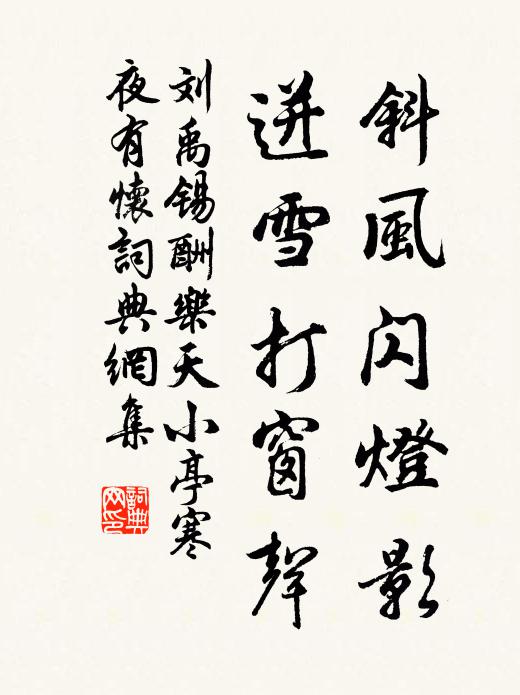 斜風閃燈影
迸雪打窗聲
刘禹锡酬樂天小亭寒
夜有懷詞典網集
詞典
网印